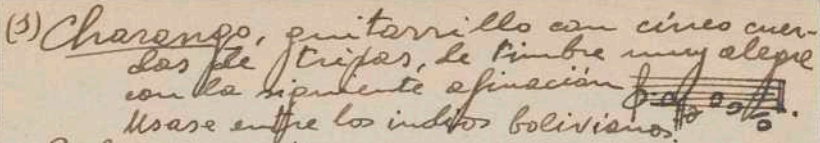 (3) Charango, guitarrillo con cinco cuer-
das de tripas, de timbre muy alegre
con la siguiente afinación
Usase entre los indios bolivianos.